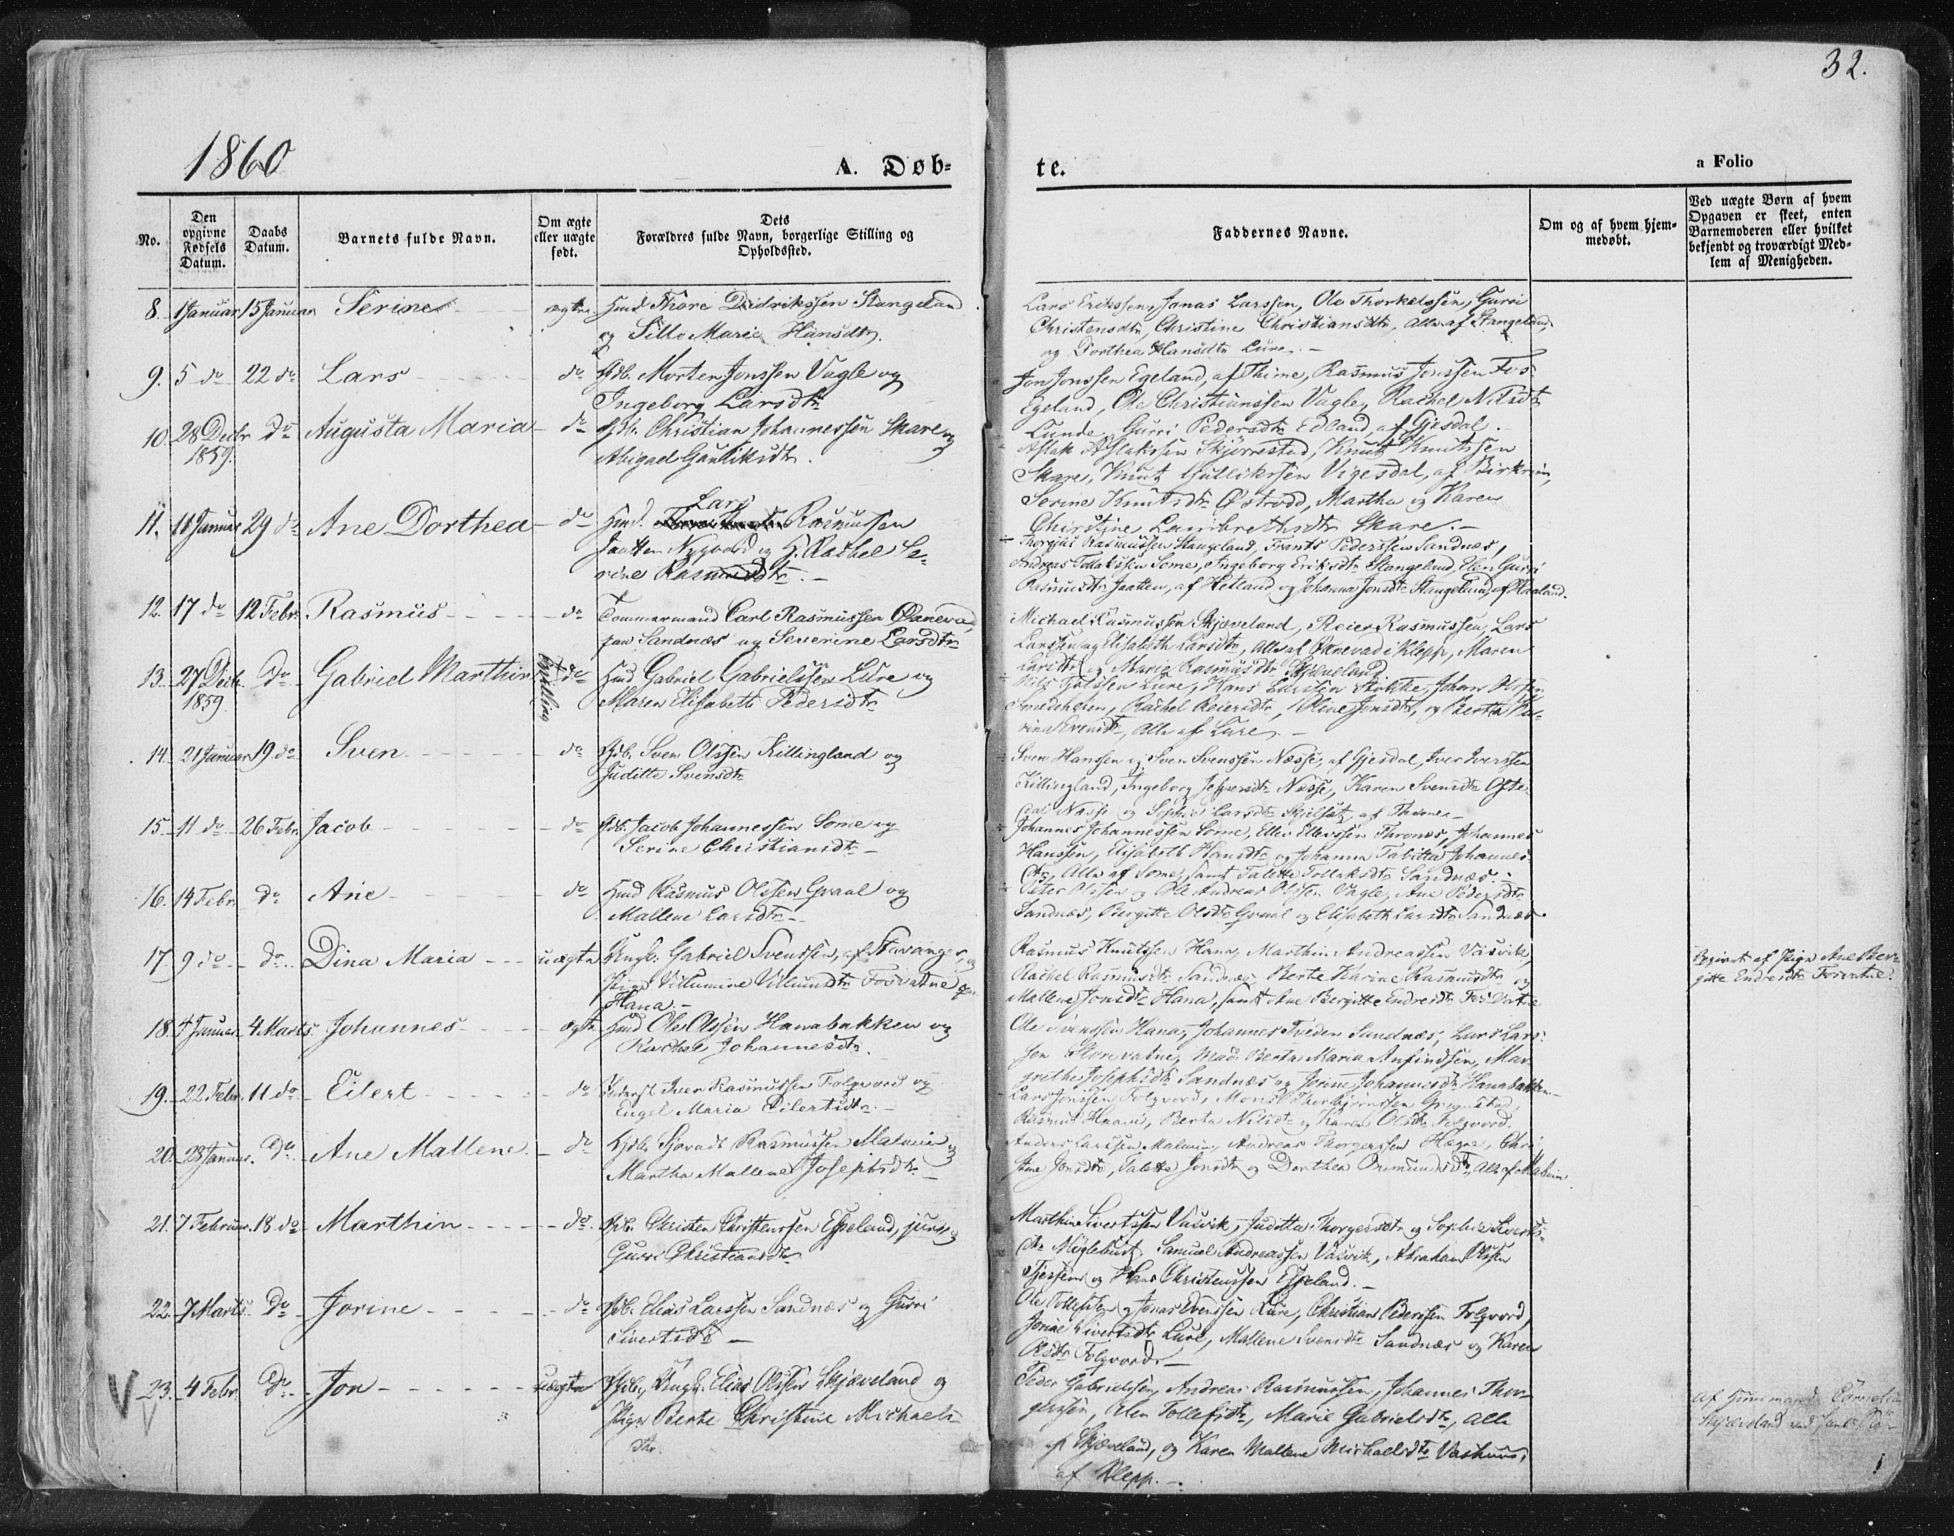 32.
1860
A. Døb-
te.
a Folio
No.
Den opgivne Fødsels Datum.
Daabs Datum.
Barnets fulde Navn.
Om ægte eller uægte født.
Dets Forældres fulde Navn, borgerlige Stilling og Opholdssted.
Faddernes Navne.
Om og af hvem hjemmedøbt.
Ved uægte Børn af hvem Opgaven er skeet, enten Barnemoderen eller hvilket bekjendt og troværdigt Medlem af Menigheden.
8. 1 Januar 15 Januar Serine ægte Hmd Thore Didriksen Stangeland
og Sille Marie Hansdtr.
Lars Eriksen, Jonas Larssen, Ole Thorkelssen, Gurri
Christensdtr, Christine Christiansdtr, alle af Stangeland,
og Dorthea Hansdtr Lure. –
9. 5 do 22 do Lars do Gdb. Morten Jonssen Vagle og
Ingeborg Larsdtr
Jon Jonssen Egeland, af Thime, Rasmus Jonssen Fos
Egeland, Ole Christianssen Vagle, Rachel Nilsdtr
Lunde, Gurri Pedersdtr Edland, af Gjesdal.
10. 28 Decbr 1859. do Augusta Maria do Gdb. Christian Johannessen Skare og
Abigael Gunliksdtr.
Aslak Aslakssen Skjørrestad, Knut Knutssen
Skare, Knut Gullikssen Vigesdal, af Birkrim,
Serine Knutsdtr Østraad, Martha og Karen
Christine Lambrethsdtr Skare. –
11. 11 Januar 29 do Ane Dorthea do Hmd. Lars Rasmussen
Jaatten Nygaard og H. Rachel Se-
rine Rasmusdtr. –
Thorgius Rasmussen Stangeland, Frants Pederssen Sandnes,
Andreas Tollakssen Some, Ingeborg Eriksdtr Stangeland, Elen Gurri
Rasmusdtr Jaatten, af Hetland og Johanna Jonsdtr Stangeland, af Haaland.
12. 17 do 12 Febr. Rasmus do Tømmermand Carl Rasmussen Øxnevad,
paa Sandnæs og Severine Larsdtr
Michael Rasmussen Skjæveland, Reier Rasmussen, Lars
Larssen og Elisabeth Larsdtr, alle af Øxnevad i Klepp, Maren
Larsdtr og Marie Rasmusdtr Skjæveland.
13. 27 Decb. 1859 do Gabriel Marthin Tvilling do Hmd Gabriel Gabrielssen Lure og
Maren Elisabeth Pedersdtr
Lure, Hans Larssen Stokke, Johan
Rachel Reiersdtr, Oline Jonsdtr, og Bertha
alle af Lure. –
14. 21 Januar 19 do Sven do Gdb. Sven Olssen Killingland og
Juditte Svensdtr
Sven Hanssen og Sven Svenssen Næsse, af Gjesdal, Iver Iverssen
Killingland, Ingeborg Jespersdtr Næsse, Karen Svensdtr
Næsse og Sophie Larsdtr af Thime –
15. 11 do 26 Febr. Jacob do Gdb. Jacob Johannessen Some og
Serine Christiansdtr –
Johannes Johannessen Some, Elles Ellevssen Thrones, Johannes
Hanssen, Elisabeth Hansdtr og Johanna Tabitta Johannes-
dtr, alle af Some, samt Talette Tollaksdtr Sandnæs. –
16. 14 Febr. do Ane do Hmd Rasmus Olssen Graal og
Mallene Larsdtr –
Peter Olssen og Ole Andreas Olssen Vagle, Ane Pedersdtr
Sandnæs, Bergitte Olsdtr Graal og Elisabeth Larsdtr Sandnæs.
17. 9 do do Dina Maria uægte Ungk. Gabriel Svenssen, af Stavanger, og
Pige Villumine Villumsdtr Fosvatne paa
Hana. –
Rasmus Knutssen Hana, Marthin Andreassen Vasvik,
Rachel Rasmusdtr Sandnæs, Berte Karine Rasmusdtr og
Mallene Jonsdtr Hana, samt Ane Bergitte Endresdtr Fosvatne
Opgivet af Pige Ane Ber-
gitte Endresdtr Fosvatne.
18. 1 Januar 4 Marts Johannes ægte Hmd Ole Olssen Hanabakken og
Rachel Johannesdtr.
Ole Svenssen Hana, Johannes Tveden Sandnæs, Lars Lars-
sen Storevatne, Mad. Berta Maria Anfindsen, Mar-
grethe Josephsdtr Sandnæs og Jorine Johannesdtr Hanabakken –
19. 22 Febr. 11 do Eilert do Iver Rasmussen Folqvord og
Engel Maria Eilertsdtr. –
Lars Jonssen Folqvord, Mons Thorbjørnssen
Rasmus Hanssen, Berta Nilsdtr og Karen Olsdtr Folqvord.
20. 28 Januar. do Ane Mallene do Gdb. Sjovadt Rasmussen Malmin og
Martha Mallene Josephsdtr. –
Anders Larssen Malmin, Andreas Thorgerssen Høgne, Chri-
stine Jonsdtr, Talette Jonsdtr og Dorthea Omundsdtr, alle af Malmin.
21. 7 Februar. 18 do Marthin do Gdb. Christen Christenssen Espeland, jun. og
Gurri Christiansdtr
Marthin Sivertssen Vasvik, Juditta Thorgersdtr og Sophie Siverts-
dtr Møglebust, Samuel Andreassen Vasvik, Abraham Olssen
og Hans Christenssen Espeland. –
22. 7 Marts do Jorine do Gdb. Elias Larssen Sandnæs og Gurri
Sivertsdtr –
Ole Tollefssen og Jonas Svenssen Lure, Christian Pederssen Folqvord,
Jorine Sivertsdtr Lure, Mallene Svensdtr Sandnæs og Karen
Olsdtr Folqvord. –
23. 4 Febr. do Jon uægte Ungk. Elias Olssen Skjæveland og
Pige Berte Christine Michaels-
dtr.
Peder Gabrielssen, Andreas Rasmussen, Johannes Thor-
gerssen, Elen Tollefsdtr, Marie Gabrielsdtr, alle
af Skjæveland, og Karen Mallene Michaelsdtr Vashuus,
af Klepp. –
Af Gunnmand
Skjæveland